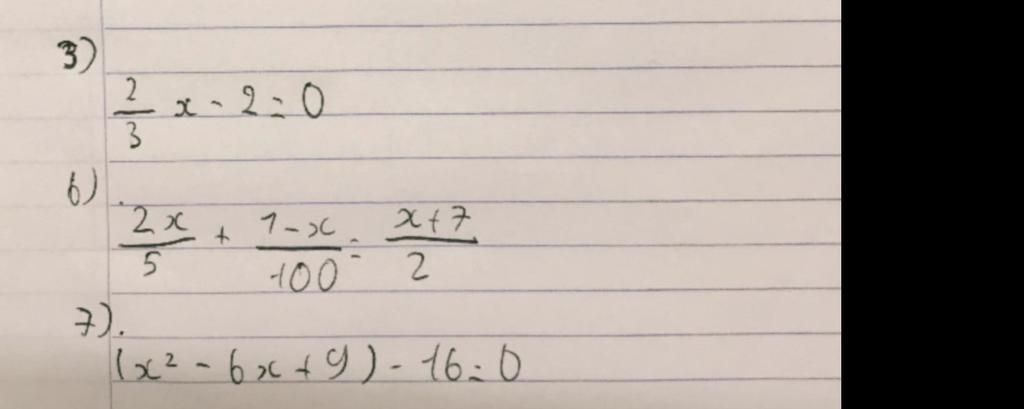 3)
2/3 x - 2 = 0
6)
2x/5 + 1-x/100 = x+7/2
7).
(x² - 6x + 9) - 16 = 0